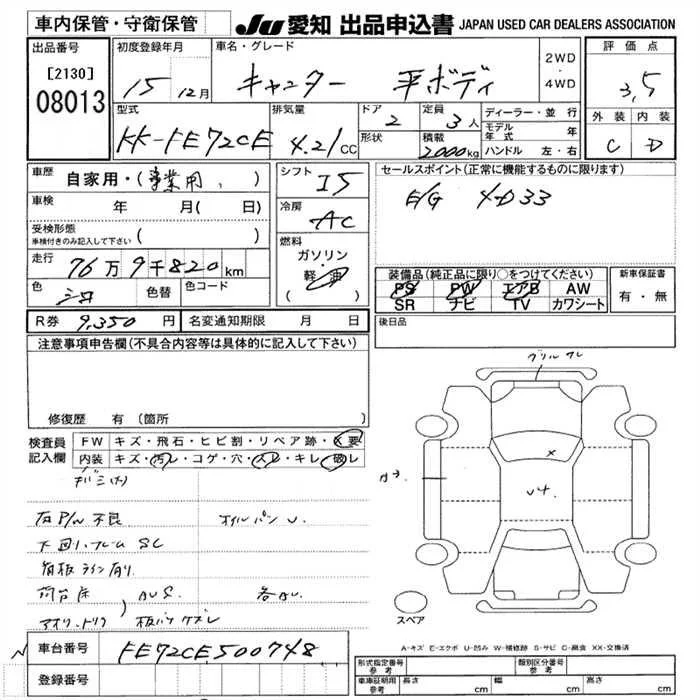 車内保管・守衛保管
JU 愛知 出品申込書 JAPAN USED CAR DEALERS ASSOCIATION
出品番号
[2130]
08013
初度登録年月
15 12月
車名・グレード
キャンター 平ボディ
2WD
・
4WD
評価点
3,5
外装 内装
C D
型式
KK-FE72CE
排気量
4.21CC
ドア
2
形状
定員
3人
積載
2000kg
ディーラー・並行
モデル年式 年
ハンドル 左・右
車歴
自家用・(事業用)
車検 年 月(日)
受検形態
車検付きのみ記入して下さい ( )
走行 76万9千820km
色 シロ 色替 色コード
R券 9,350円 名変通知期限 月 日
シフト I5
冷房 AC
燃料
ガソリン・
(軽油)
セールスポイント(正常に機能するものに限ります)
E/G 4D33
装備品(純正品に限り○をつけてください)
PS PW エアB AW
SR ナビ TV カワシート
新車保証書
有・無
後日品
注意事項申告欄(不具合内容等は具体的に記入して下さい)
修復歴 有(箇所
検査員
記入欄
FW キズ・飛石・ヒビ割・リペア跡・X要
内装 キズ・汚レ・コゲ・穴・スレ・キレ・破レ
右P/W不良 オイルパンU.
下回り.フレームSC
荷台床
アオリ.トリ
車台番号 FE72CE500748
登録番号
グリルワレ
X
U4
スペア
A-キズ E-エクボ U-凹み W-補修跡 S-サビ C-腐食 XX-交換済
形式指定番号
参考
類別区分番号
参考
車庫証明用
参考
長さ cm
幅 cm
高さ cm